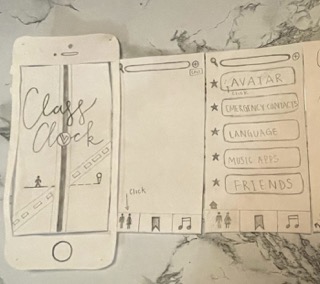 Class
Clock
Click
AVATAR
EMERGENCY CONTACTS
LANGUAGE
MUSIC APPS
FRIENDS